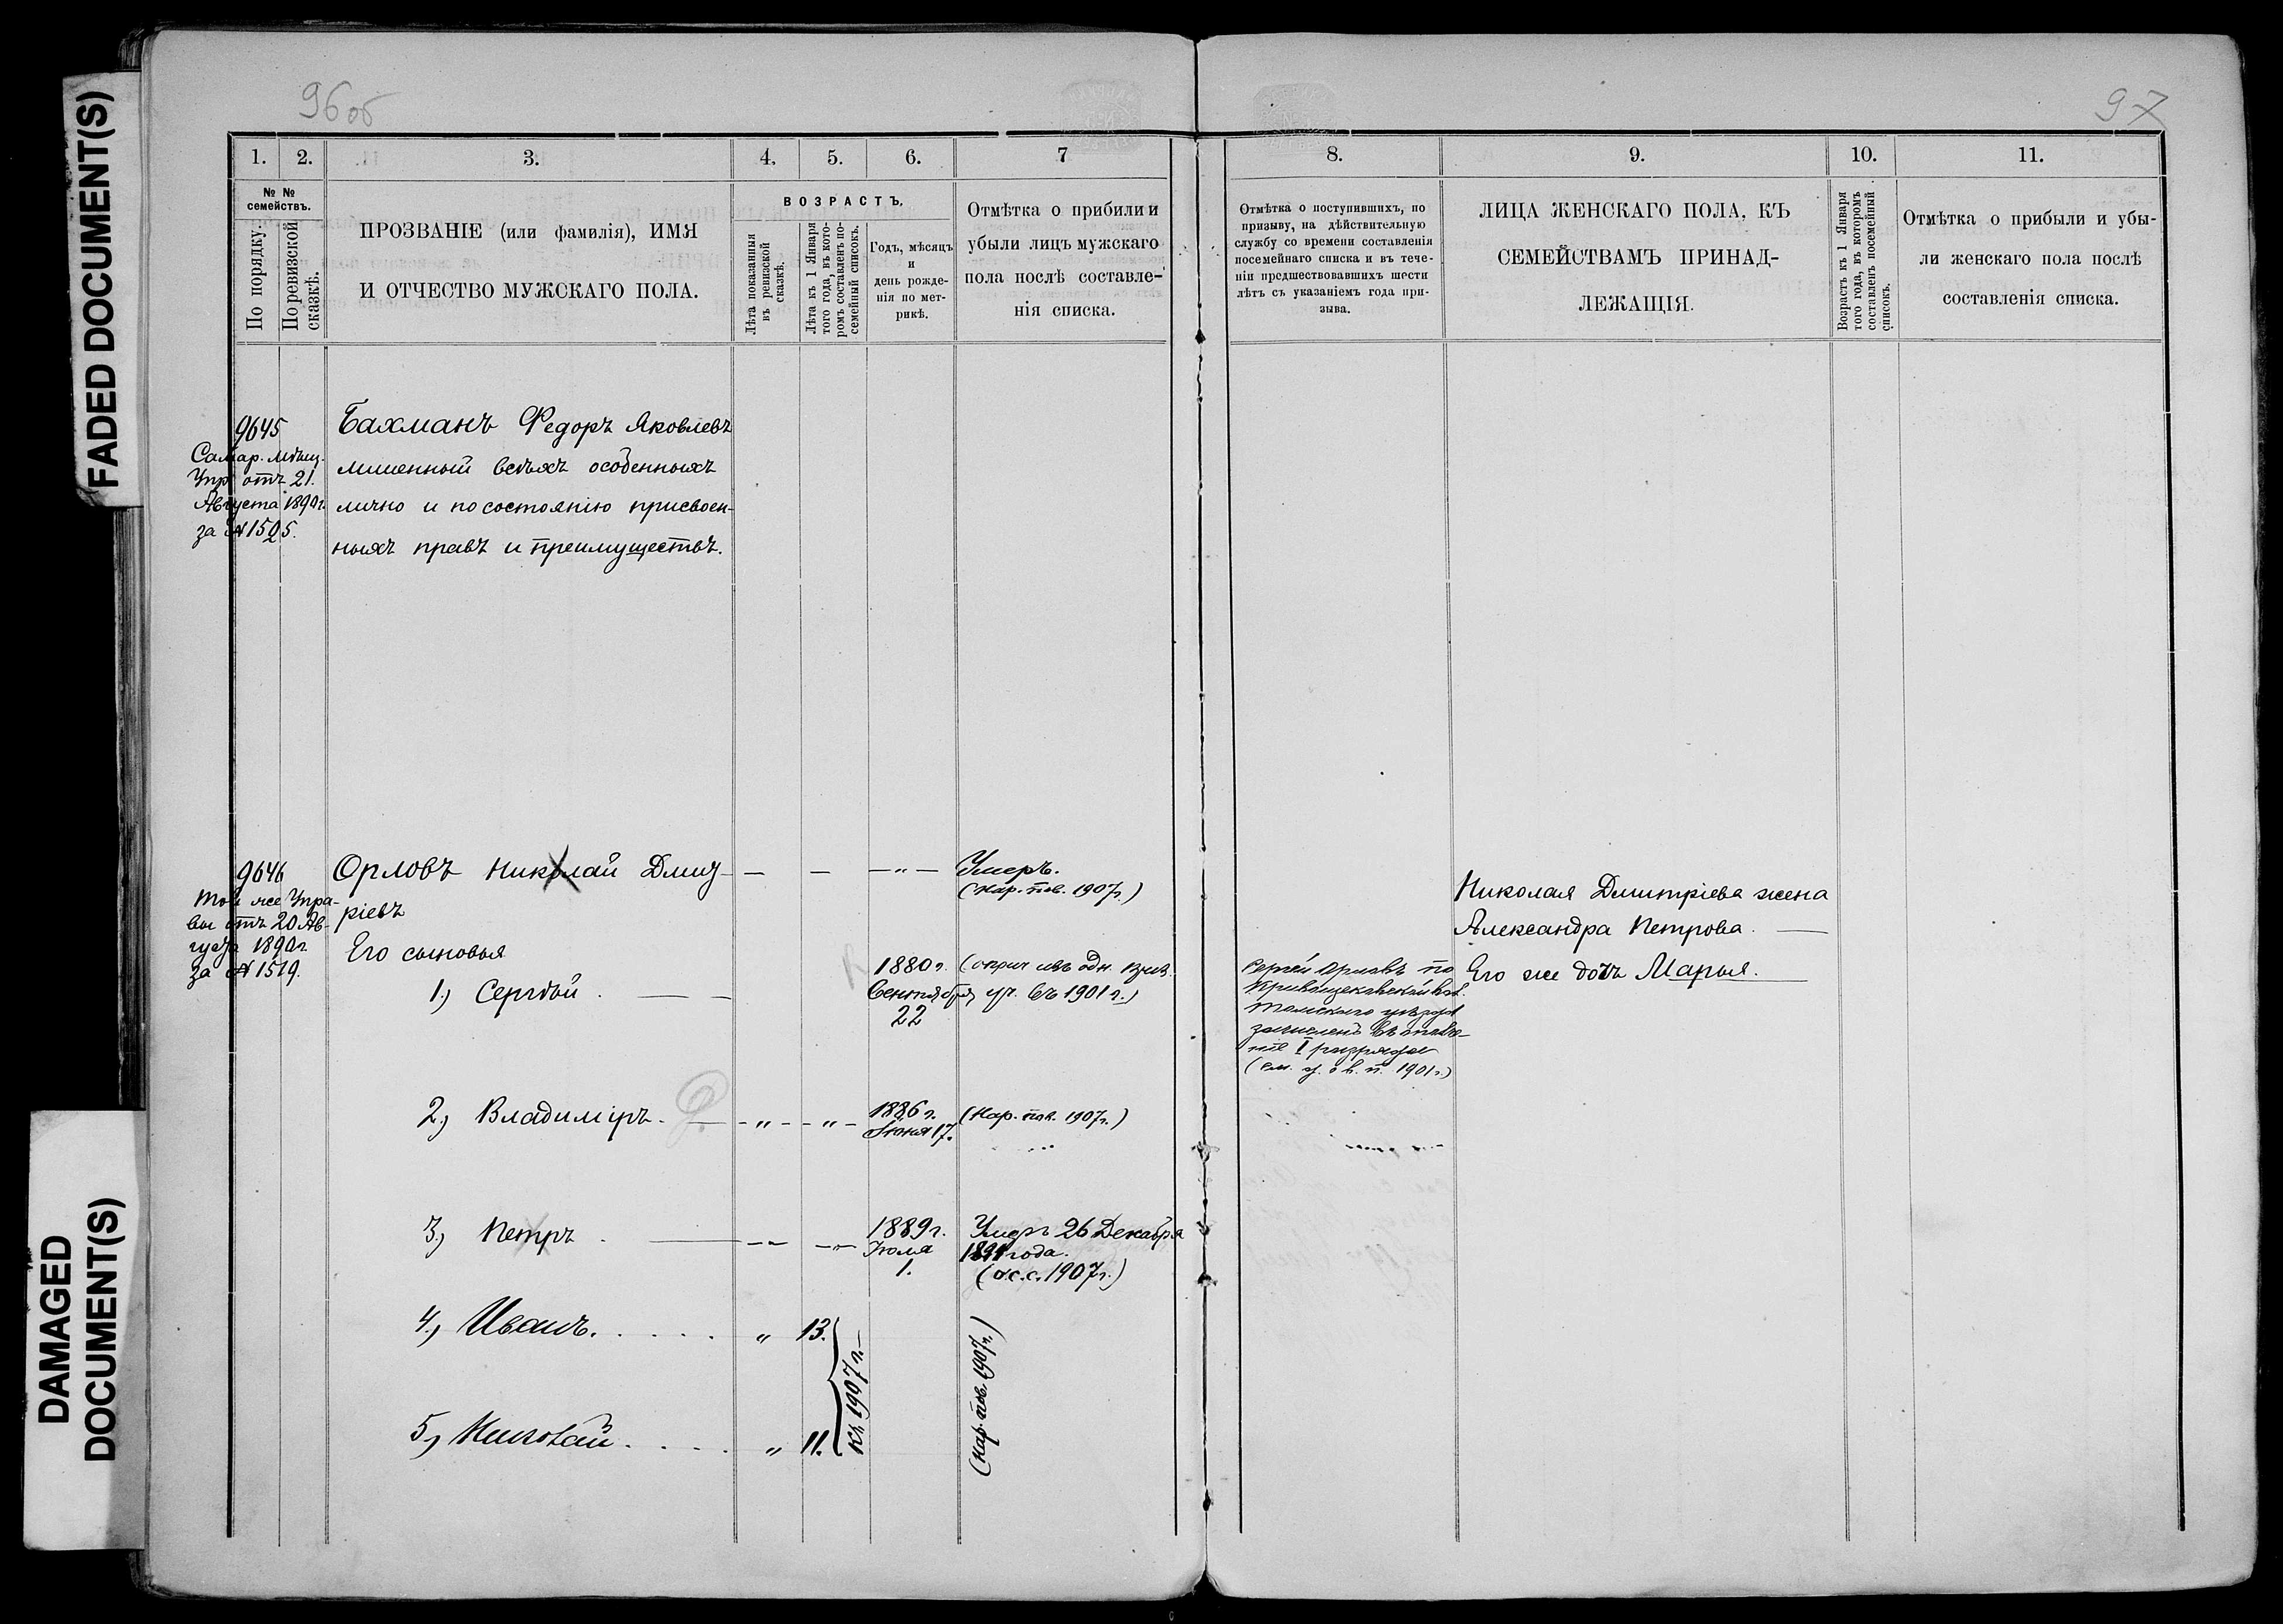 FADED DOCUMENT(S)
DAMAGED
DOCUMENT(S)
96 об
97
1.
2.
3.
4.
5.
6.
7
№ №
семействъ.
По порядку.
По ревизской
сказкѣ.
ПРОЗВАНІЕ (или фамилія), ИМЯ
И ОТЧЕСТВО МУЖСКАГО ПОЛА.
ВОЗРАСТЪ.
Лѣта показанныя
въ ревизской
сказкѣ.
Лѣта къ 1 Января
того года, въ кото-
ромъ составленъ по-
семейный списокъ.
Годъ, мѣсяцъ
и
день рожде-
нія по мет-
рикѣ.
Отмѣтка о прибыли и
убыли лицъ мужскаго
пола послѣ составле-
нія списка.
9645
Самар. мѣщ.
Упр. отъ 21.
Августа 1890 г.
за № 1505.
Бахманъ Федоръ Яковлевъ
лишенный всѣхъ особенныхъ
лично и по состоянію присвоен-
ныхъ правъ и преимуществъ.
9646
Той же Упра-
вы отъ 20 Ав-
густа 1890 г.
за № 1519.
Орловъ Николай Дмит-
ріевъ
— — —„—
Умеръ.
(Нар. пов. 1907 г.)
Его сыновья
1.) Сергѣй . — —
1880 г.
Сентября
22
уч. въ 1901 г.)
2.) Владиміръ. — - „ - - „ -
1886 г.
Іюня 17.
(Нар. пов. 1907 г.)
3.) Петръ .
1889 г.
Іюля
1.
Умеръ 26 Декабря
1891 года.
(о.с.с. 1907 г.)
4.) Иванъ. . . . . „ 13.
5.) Николай. . . . . „ 11.
Къ 1907 г. —
(Нар. пов. 1907 г.)
8.
9.
10.
11.
Отмѣтка о поступившихъ, по
призыву, на дѣйствительную
службу со времени составленія
посемейнаго списка и въ тече-
ніи предшествовавшихъ шести
лѣтъ съ указаніемъ года при-
зыва.
ЛИЦА ЖЕНСКАГО ПОЛА, КЪ
СЕМЕЙСТВАМЪ ПРИНАД-
ЛЕЖАЩІЯ.
Возрастъ къ 1 Января
того года, въ которомъ
составленъ посемейный
списокъ.
Отмѣтка о прибыли и убы-
ли женскаго пола послѣ
составленія списка.
Николая Дмитріева жена
Александра Петрова. —
Его же дочь Марья.
Сергѣй Орловъ по
Кривощековской вол.
Томскаго уѣзда
зачисленъ въ ополче-
ніе I разряда
1901 г.)